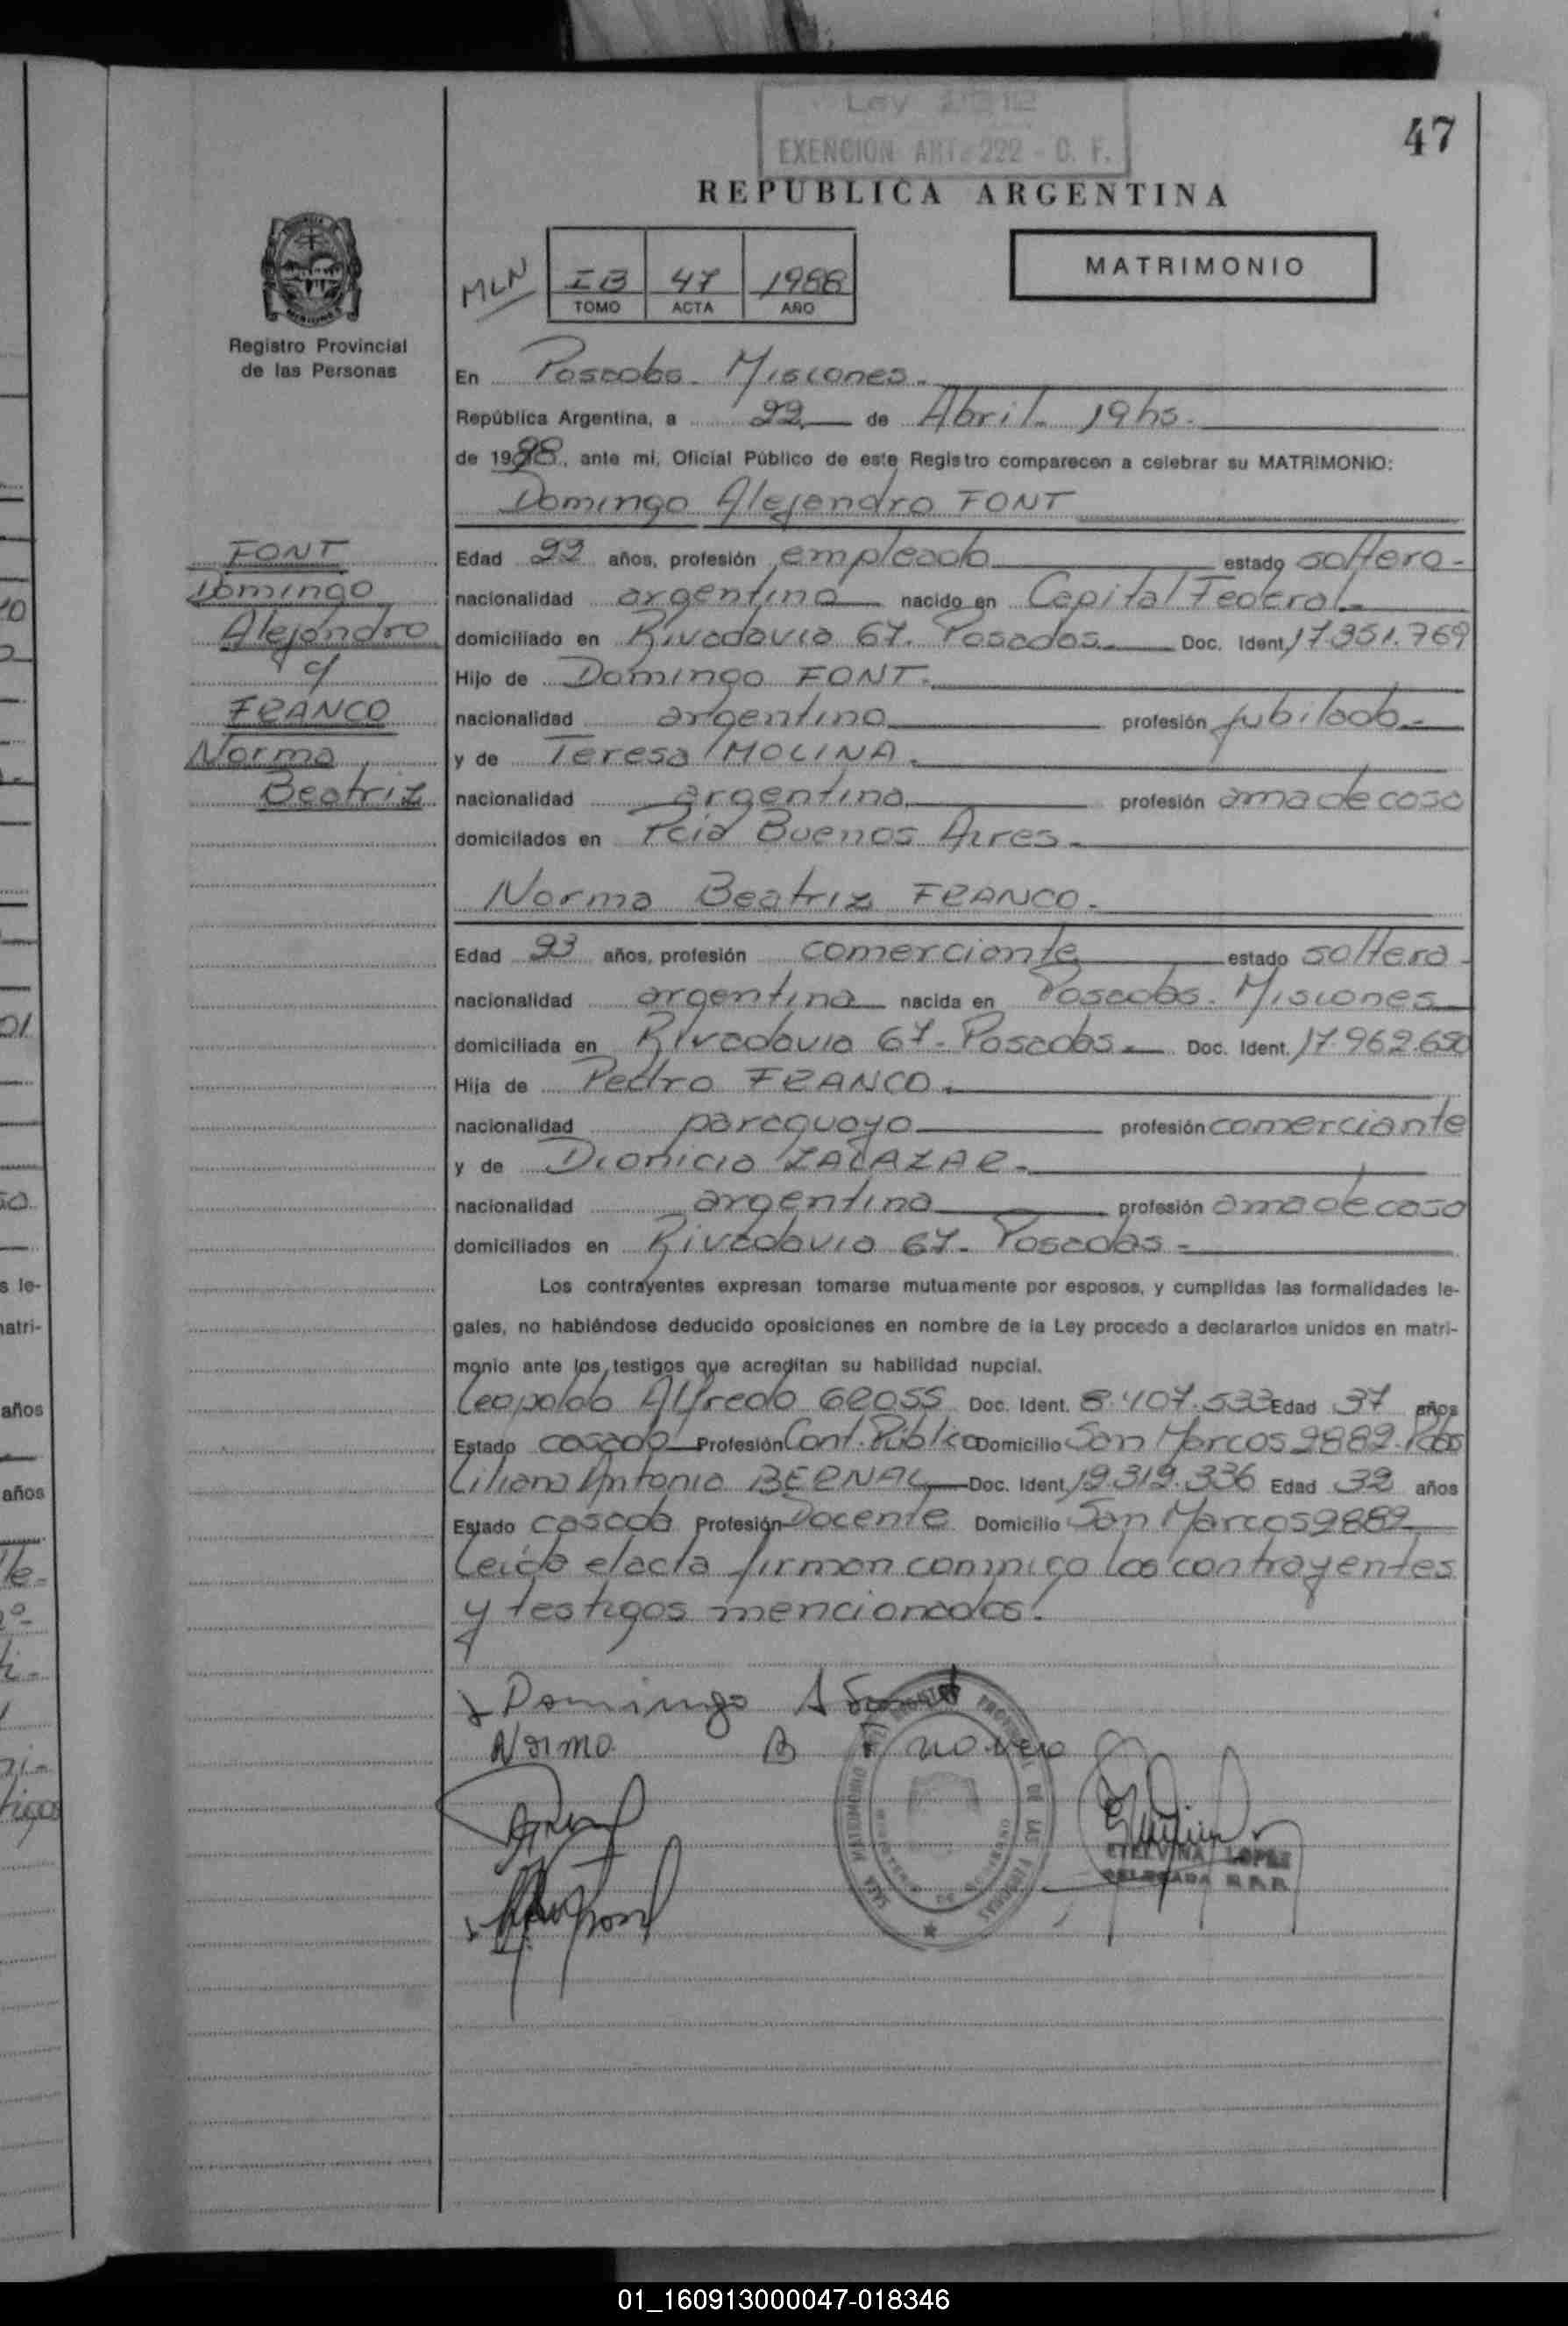 Ley
EXENCION ART. 222 - C. F.
47
REPUBLICA ARGENTINA
MLN
I B 47 1988
TOMO ACTA AÑO
MATRIMONIO
Registro Provincial
de las Personas
En Posadas. Misiones.
República Argentina, a 22 de Abril. 19hs.
de 1988, ante mi, Oficial Público de este Registro comparecen a celebrar su MATRIMONIO:
Domingo Alejandro FONT
FONT
Domingo
Alejandro
y
FRANCO
Norma
Beatriz
Edad 22 años, profesión empleado estado soltero-
nacionalidad argentina nacido en Capital Federal-
domiciliado en Rivadavia 67. Posadas. Doc. Ident. 17.351.769
Hijo de Domingo FONT.
nacionalidad argentina profesión jubilado-
y de Teresa MOLINA.
nacionalidad argentina profesión ama de casa
domicilados en Pcia Buenos Aires.
Norma Beatriz FRANCO.
Edad 23 años, profesión comerciante estado soltera-
nacionalidad argentina nacida en Posadas. Misiones
domiciliada en Rivadavia 67- Posadas. Doc. Ident. 17.962.650
Hija de Pedro FRANCO.
nacionalidad paraguayo profesión comerciante
y de Dionicia ZALAZAR.
nacionalidad argentina profesión ama de casa
domiciliados en Rivadavia 67- Posadas-
Los contrayentes expresan tomarse mutuamente por esposos, y cumplidas las formalidades le-
gales, no habiéndose deducido oposiciones en nombre de la Ley procedo a declararlos unidos en matri-
monio ante los testigos que acreditan su habilidad nupcial.
Leopoldo Alfredo GROSS Doc. Ident. 8.407.533 Edad 37 años
Estado casado Profesión Cont. Público Domicilio San Marcos 2882. Pdas
Liliana Antonia BERNAL Doc. Ident. 12.312.336 Edad 32 años
Estado casada Profesión Docente Domicilio San Marcos 2882
Leída el acta firman conmigo los contrayentes
y testigos mencionados.
Domingo A Font
Norma B Franco
REGISTRO PROVINCIAL DE LAS PERSONAS
SALA MATRIMONIO
ETELVINA LOPEZ
DELEGADA R.P.P.
10
01
s le-
matri-
años
años
01_160913000047-018346